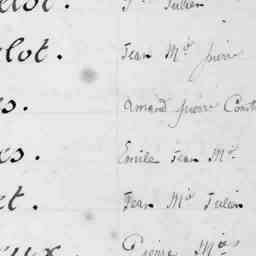 Julien
lot. Jean Mie pierre
s. Amand pierre Const
s. Emile Jean Mie
et. Jean Mie Julien
eux. Pierre Mie